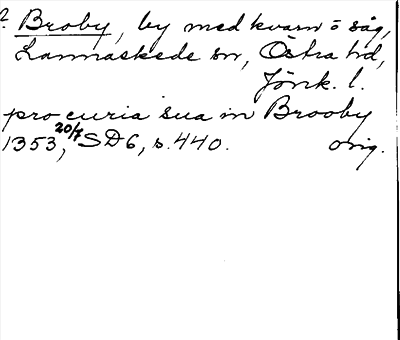 ? Broby, by med kvarn o såg,
Lannaskede sn, Östra hd,
Jönk. l.
pro curia sua in Brooby
1353, 20/7 SD6, s. 440. orig.